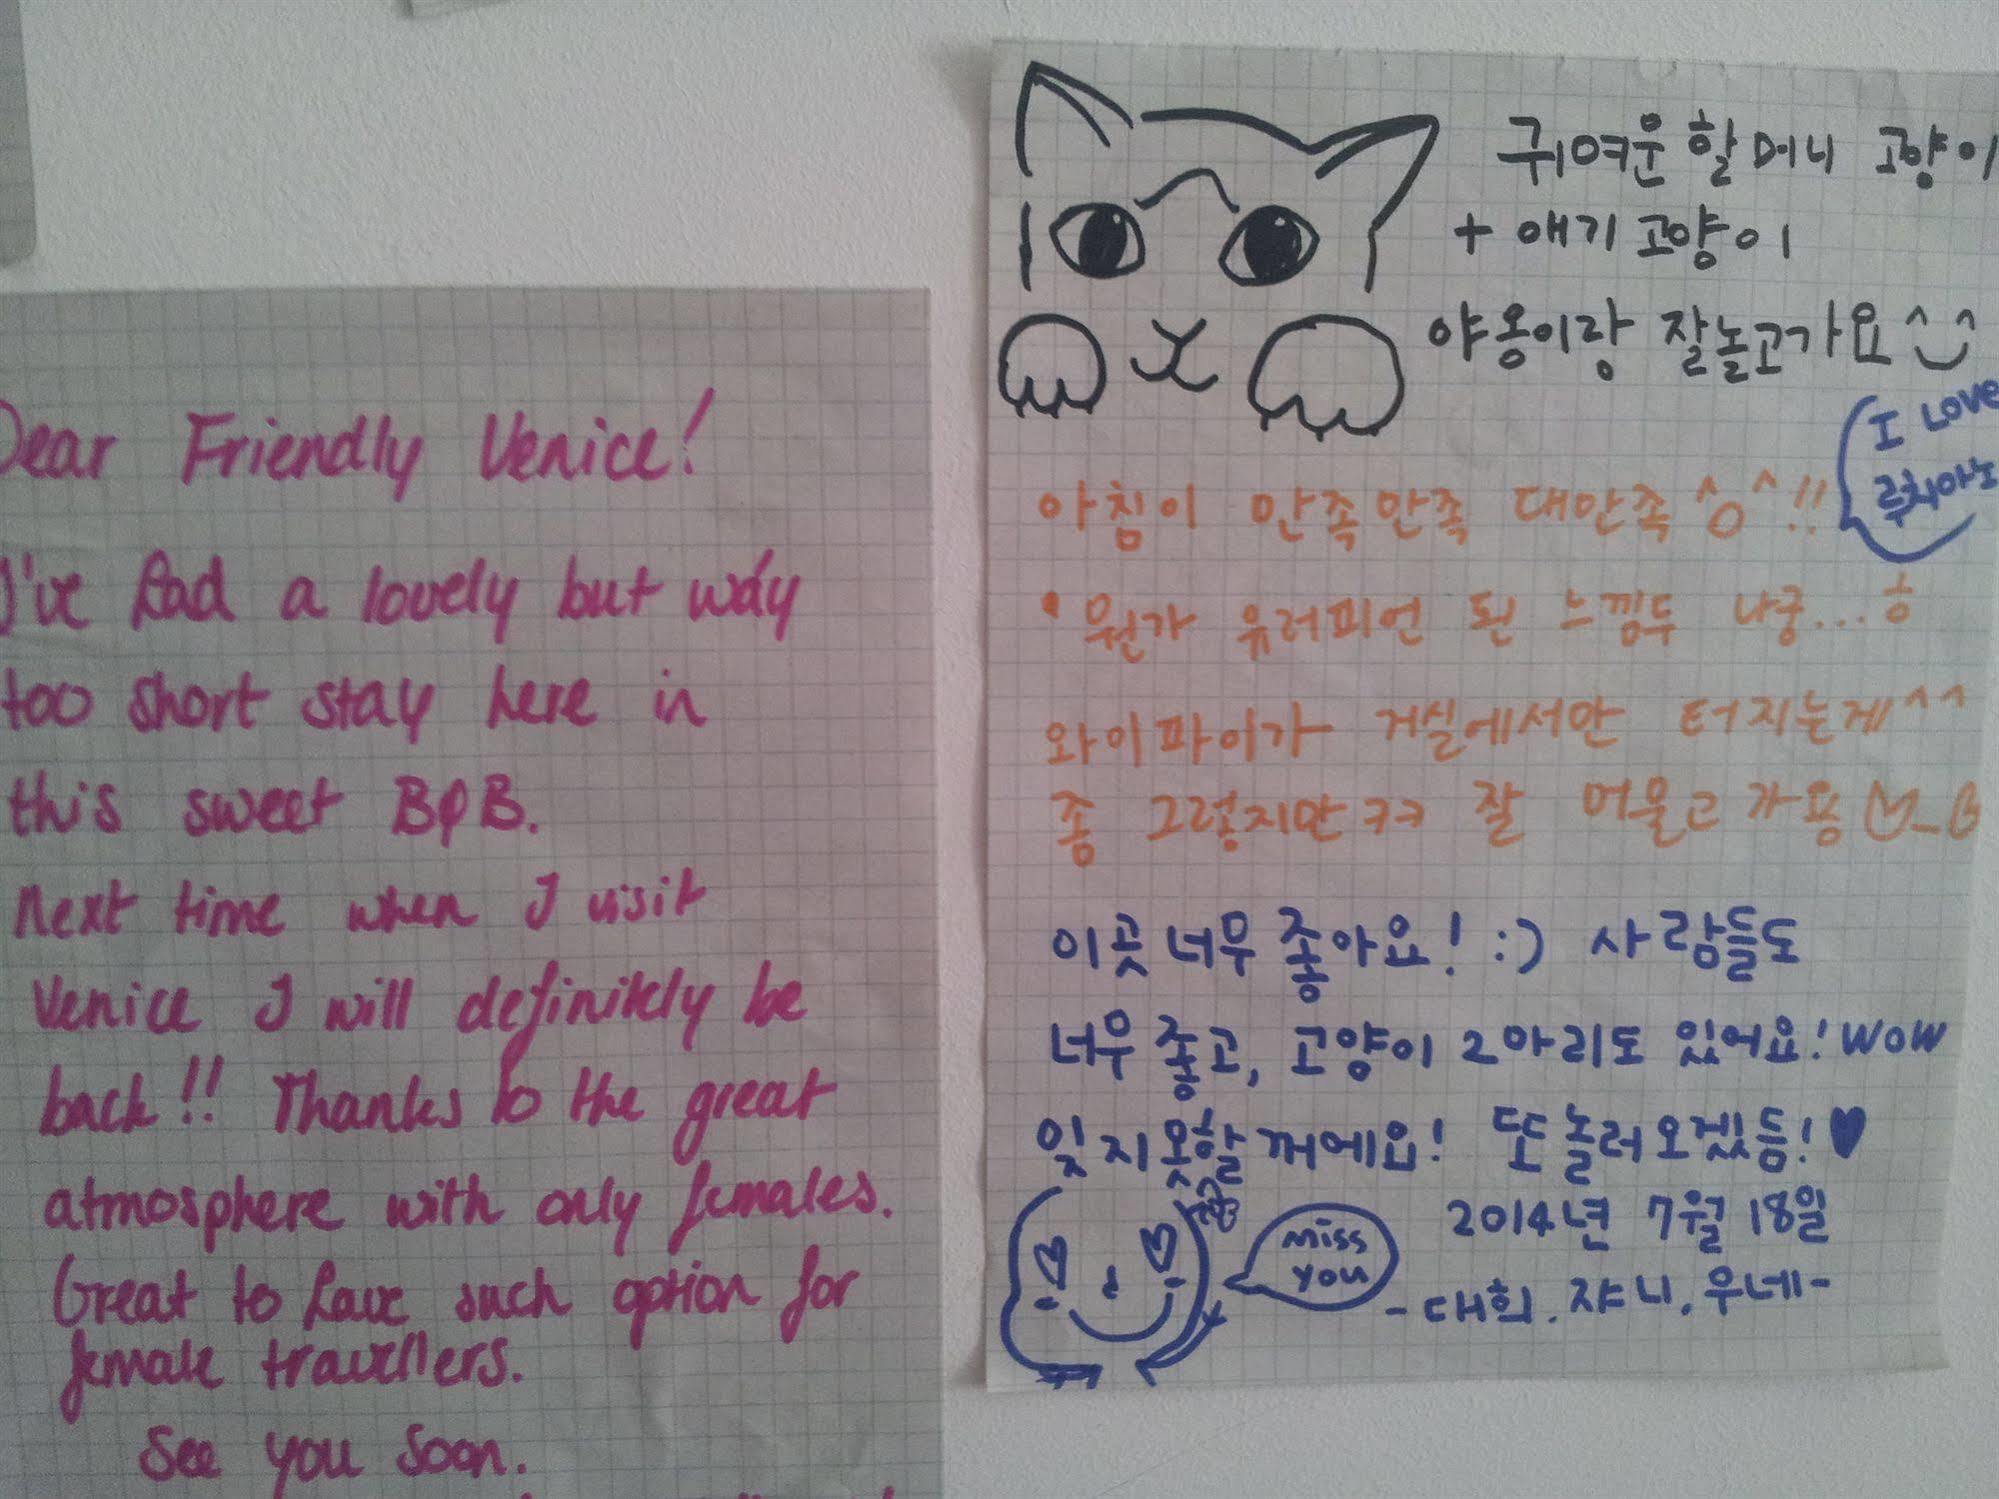 Dear Friendly Venice!
I've had a lovely but way
too short stay here in
this sweet B&B.
Next time when I visit
Venice I will definitely be
back!! Thanks to the great
atmosphere with only females.
Great to have such option for
female travellers.
See you soon.
귀여운 할머니 고양이
+ 애기 고양이
야옹이랑 잘놀고가요^‿^
I LOVE
루치아노
아침이 만족만족 대만족^o^!!
• 뭔가 유러피언 된 느낌두 나궁...ㅎ
와이파이가 거실에서만 터지는게^^
좀 그렇지만ㅋㅋ 잘 머물고 가용♡_♡
이곳 너무 좋아요! :) 사람들도
너무 좋고, 고양이 2마리도 있어요! WOW
잊지못할꺼에요! 또 놀러오겠듬!♥
miss
you
2014년 7월 18일
-대희. 쟈니. 우네-